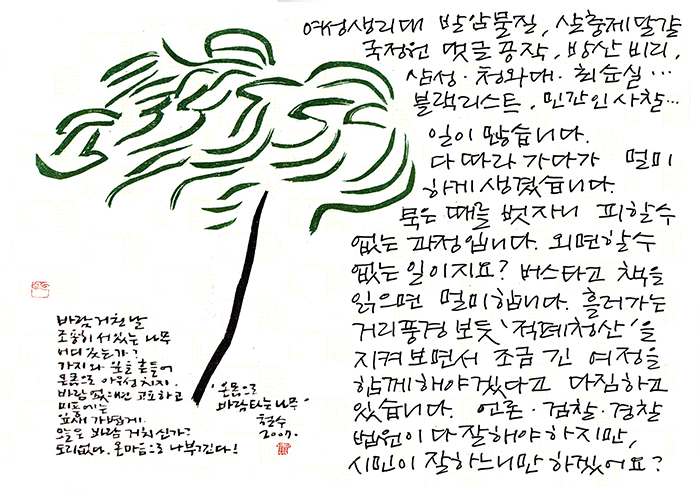 여성생리대 발암물질, 살충제달걀
국정원 댓글 공작, 방산 비리,
삼성·청와대·최순실…
블랙리스트, 민간인 사찰…
일이 많습니다.
다 따라 가다가 멀미
하게 생겼습니다.
묵은 때를 벗자니 피할수
없는 과정입니다. 외면할수
없는 일이지요? 버스타고 책을
읽으면 멀미합니다. 흘러가는
거리풍경 보듯 '적폐청산'을
지켜 보면서 조금 긴 여정을
함께해야겠다고 다짐하고
있습니다. 언론·검찰·경찰
법원이 다 잘해야 하지만,
시민이 잘하느니만 하겠어요?
바람 거친 날
조용히 서 있는 나무
어디 있는가?
가지와 잎을 흔들어
온몸으로 아우성치지.
바람 없으면 고요하고
미풍에는
잎새 가볍게.
오늘은 바람 거치신가?
도리없다. 온마음으로 나부낀다!
'온몸으로
바람타는 나무'
철수
2007.